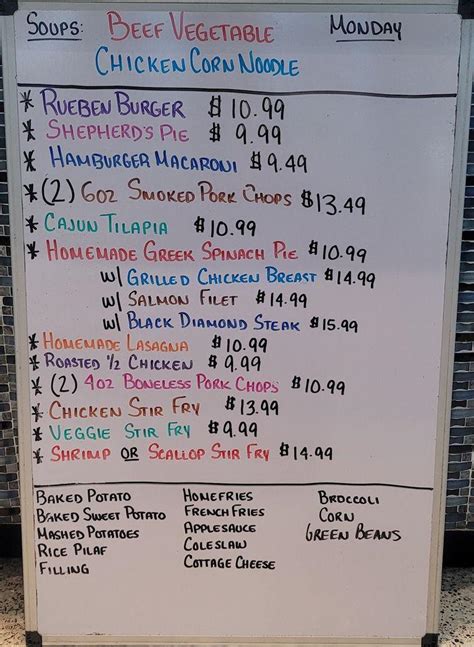 Soups: Beef Vegetable Monday
Chicken Corn Noodle
* Rueben Burger $10.99
* Shepherd's Pie $9.99
* Hamburger Macaroni $9.49
* (2) 6oz Smoked Pork Chops $13.49
* Cajun Tilapia $10.99
* Homemade Greek Spinach Pie $10.99
w/ Grilled Chicken Breast $14.99
w/ Salmon Filet $14.99
w/ Black Diamond Steak $15.99
* Homemade Lasagna $10.99
* Roasted 1/2 Chicken $9.99
* (2) 4oz Boneless Pork Chops $10.99
* Chicken Stir Fry $13.99
* Veggie Stir Fry $9.99
* Shrimp or Scallop Stir Fry $14.99
Baked Potato
Baked Sweet Potato
Mashed Potatoes
Rice Pilaf
Filling
Homefries
French Fries
Applesauce
Coleslaw
Cottage Cheese
Broccoli
Corn
Green Beans